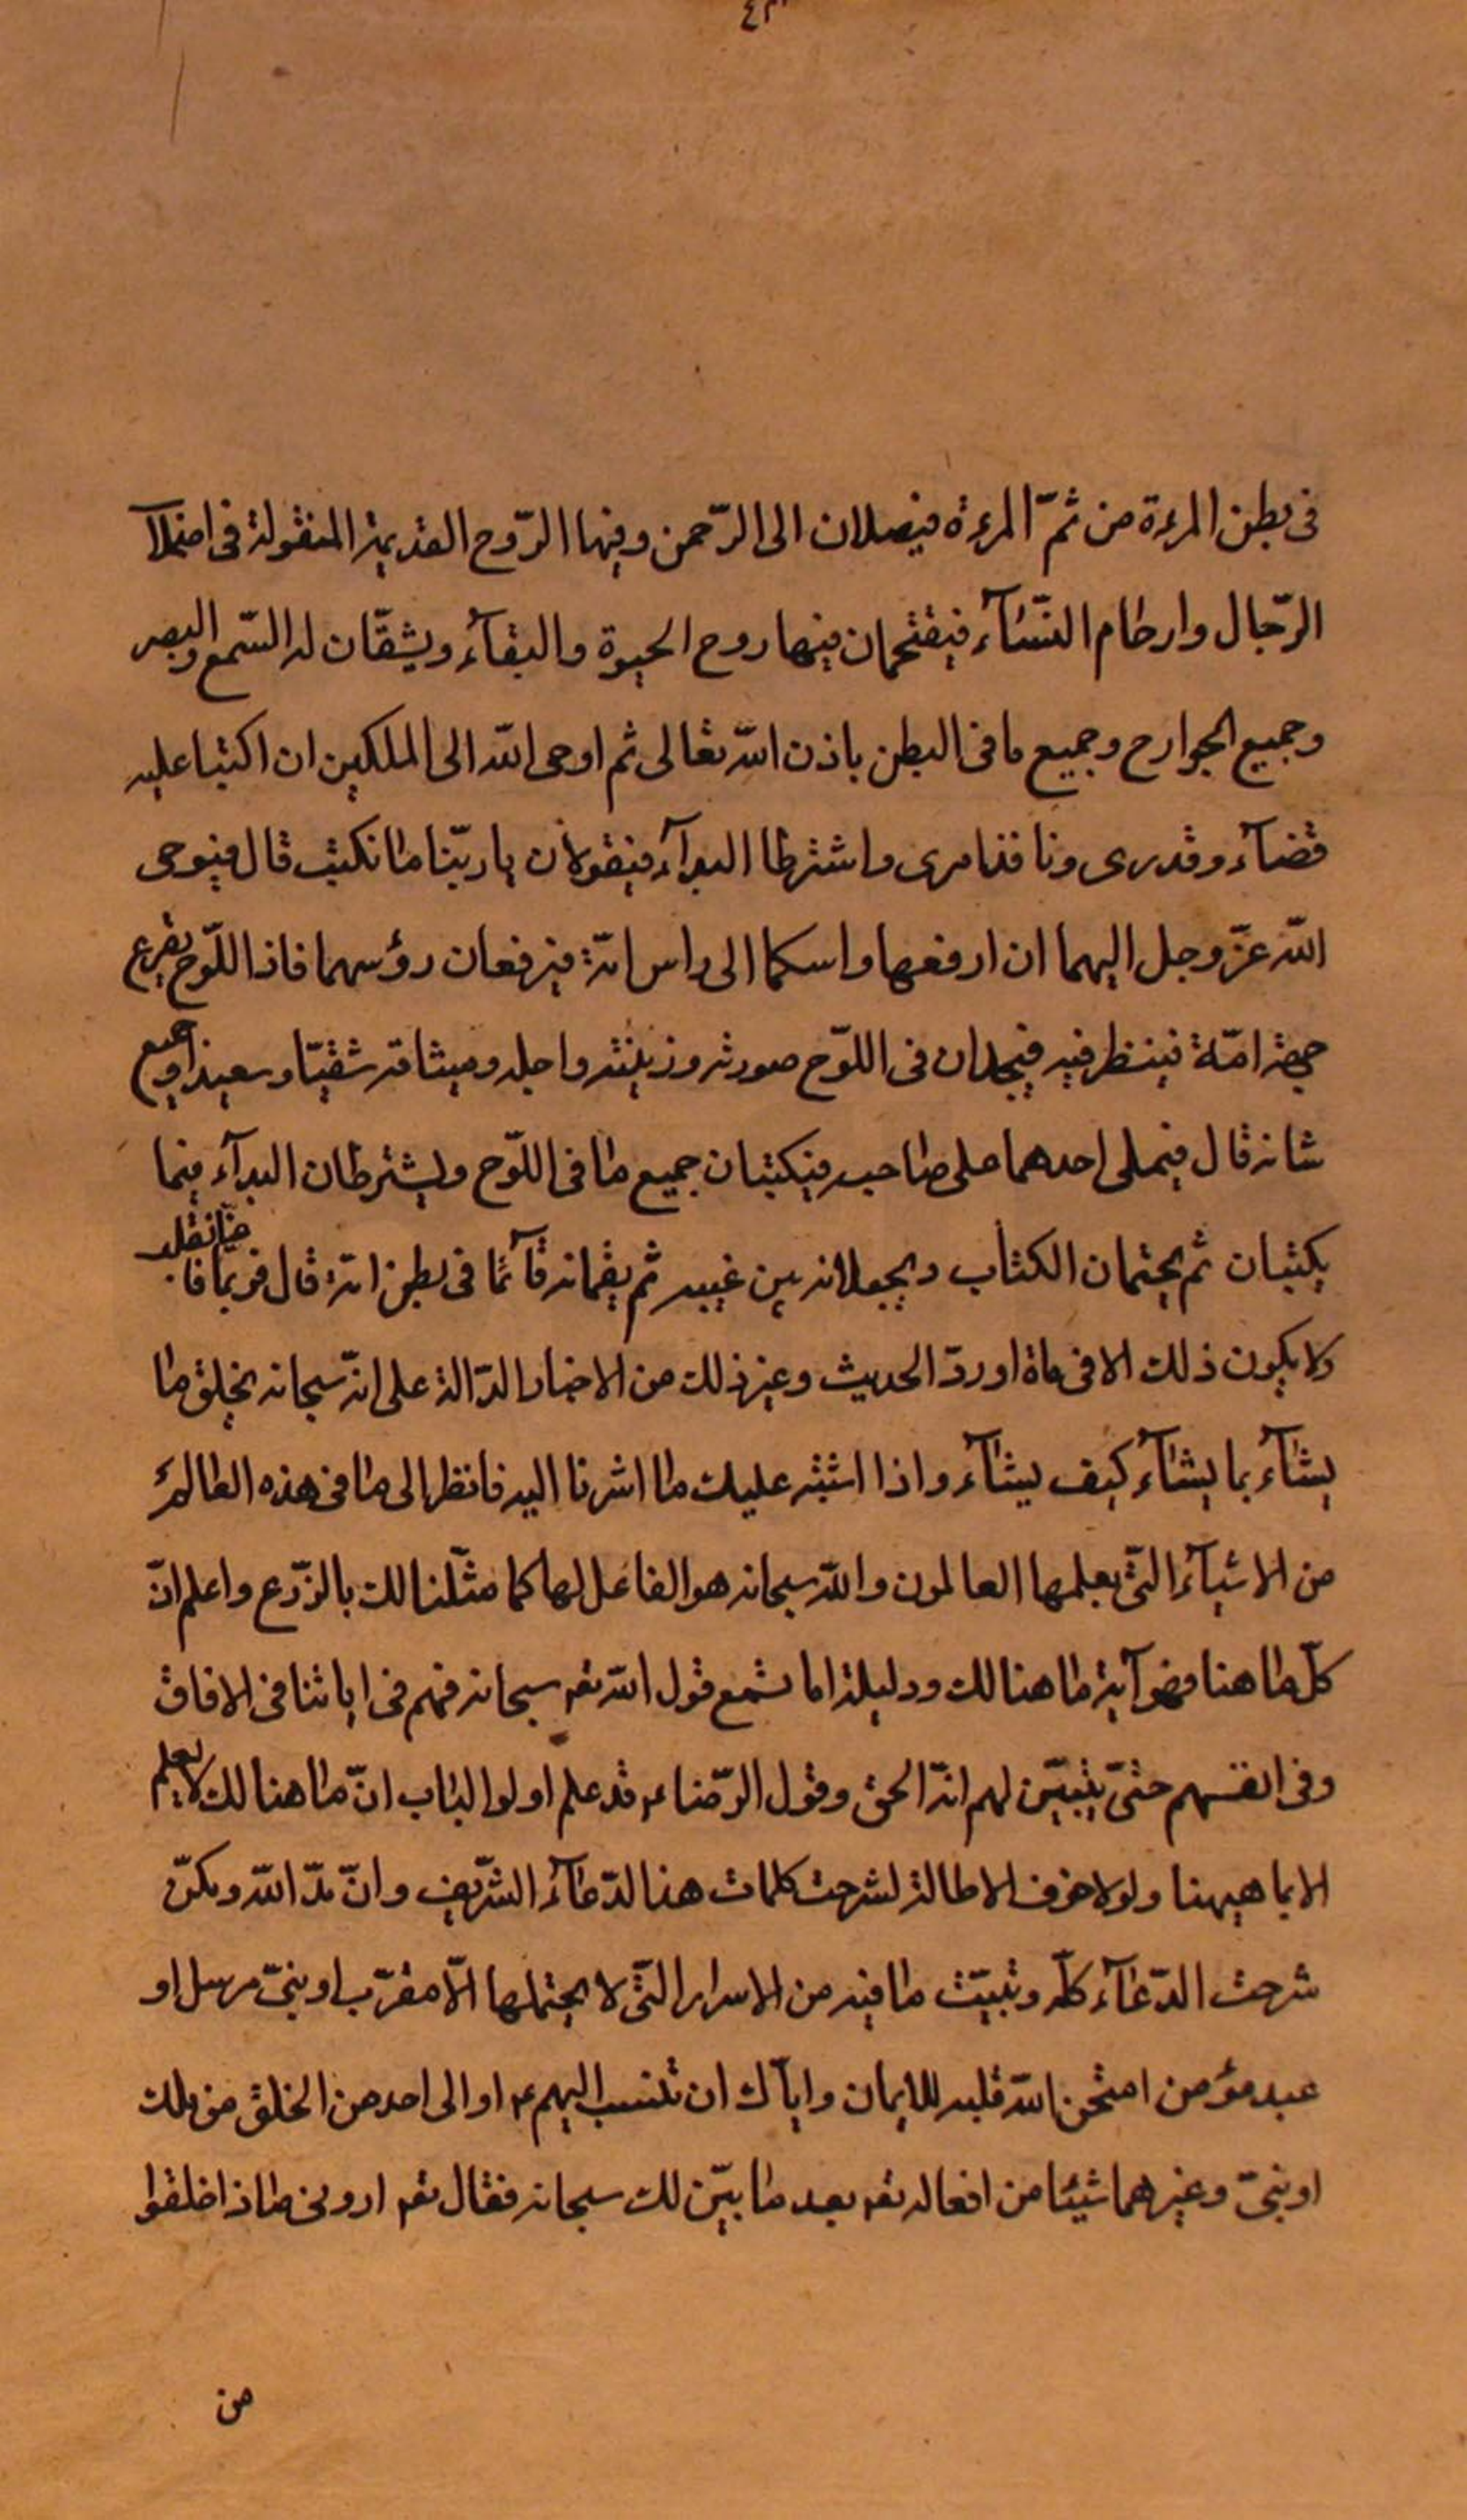 ٤٣
فى بطن المرءة من ثمّ المرءة فيصلان الى الرّحمن وفيها الرّوح القديمة المنقولة فى اصلاب
الرّجال وارحام النّسآء فيقتحمان فيها روح الحيوة والبقآء ويشقّان له السّمع والبصر
وجميع الجوارح وجميع ما فى البطن باذن اللّه تعالى ثم اوحى اللّه الى الملكين ان اكتبا عليه
قضآء وقدرى ونافذ امرى واشترطا البدآء فيقولان ياربّنا ما نكتب قال فيوحى
اللّه عزّ وجل اليهما ان ارفعها راسكما الى راس امّة فيرفعان رؤسهما فاذا اللّوح يقرع
جبهة امّة فينظر فيه فيجدان فى اللّوح صورته وزينته واجله وميثاقه شقيّا وسعيدا وجميع
شانه قال فيملى احدهما على صاحبه فيكتبان جميع ما فى اللّوح ويشترطان البدآء فيما
يكتبان ثم يختمان الكتاب ويجعلانه بين عينيه ثم يقيمانه قآئما فى بطن امّه قال فربما
ولا يكون ذلك الا فى ماة اوردّ الحديث وغير ذلك من الاخبار الدّالة على انّه سبحانه يخلق ما
يشآء بما يشآء كيف يشآء واذا اشتبه عليك ما اشرنا اليه فانظر الى ما فى هذه العالم
من الاشيآء الّتى يعلمها العالمون واللّه سبحانه هو الفاعل لها كما مثّلنا لك بالزّرع واعلم انّ
كلّ ما هنا فهو آية ما هنالك ودليله اما تسمع قول اللّه تعه سبحانه نريهم اياتنا فى الافاق
وفى انفسهم حتّى يتبيّن لهم انّه الحق وقول الرّضا ع قد علم اولوا لباب انّ ما هنالك لا يعلم
الا بما هيهنا ولولا خوف الاطالة لشرحت كلمات هذا الدّعآء الشّريف وانّ مدّ اللّه ومكنّ
شرحت الدّعآء كلّه وتبيّت ما فيه من الاسرار الّتى لا يحتملها الّا مقرّب او نبىّ مرسل او
عبد مؤمن امتحن اللّه قلبه للايمان وايآك ان تنسب اليهم ع او الى احد من الخلق من ملك
او نبىّ وغيرهما شيئا من افعاله تعه بعد ما بيّن لك سبحانه فقال تعه ارونى ماذا خلقوا
من